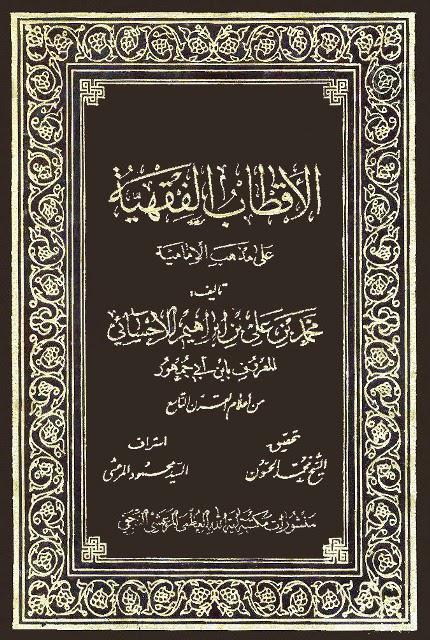 الأقطاب الفقهية
على مذهب الإمامية
تأليف:
محمد بن علي بن إبراهيم الأحسائي
المعروف بابن أبي جمهور
من أعلام القرن التاسع
تحقيق
الشيخ محمد الحسون
اشراف
السيد محمود المرعشي
منشورات مكتبة آية الله العظمى المرعشي النجفي